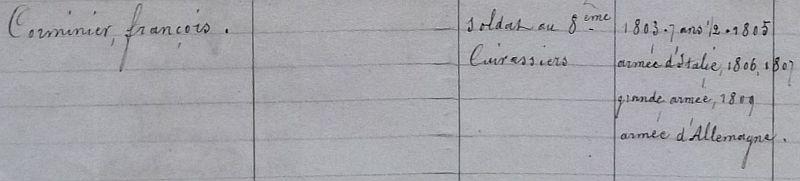 Corminier, françois.
soldat au 8ème
Cuirassiers
1803. 7 ans 1/2. 1805
armée d'Italie, 1806, 1807
grande armée, 1809
armée d'Allemagne.